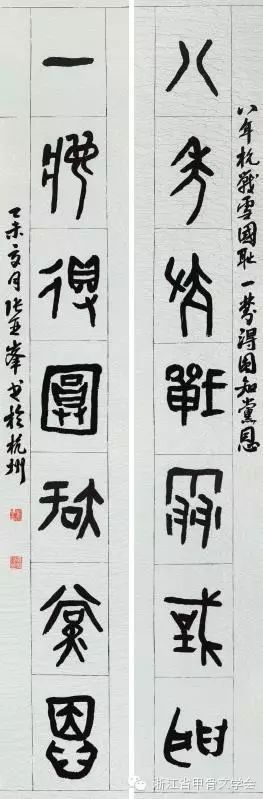 八年抗戰雪國耻 一夢得圓知黨恩
八年抗戰雪國恥
一夢得圓知黨恩
乙未亥月張亚峯书於杭州
浙江省甲骨文学会